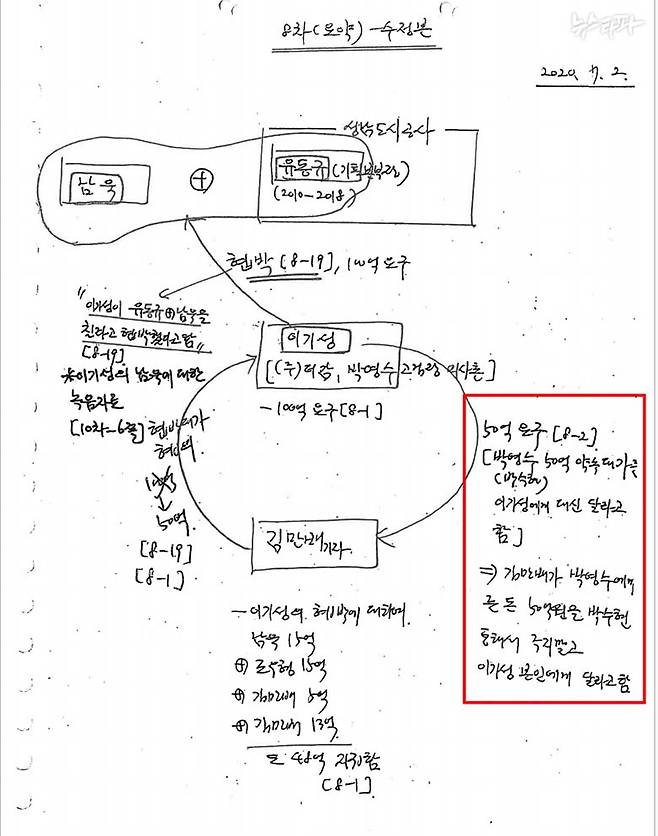 뉴스타파
8차(요약) - 수정본
2020. 7. 2.
성남도시공사
남욱
⊕
유동규 (기획본부장)
(2010-2018)
협박 [8-19], 100억 요구
"이기성이 유동규⊕남욱을
친라고 협박했다고함"
[8-19]
※이기성의 남욱에 대한
녹음자료
[10차-6쪽]
이기성
[(주)더감, 박영수 고검장 외사촌]
- 100억 요구 [8-1]
협박대가
협의
100억
↓
50억
[8-19]
[8-1]
김만배기자
50억 요구 [8-2]
[박영수 50억 약속대가를
(박수현)
이기성에게 대신 달라고
함]
⇒ 김만배가 박영수에게
준 돈 50억원을 박수현
통해서 주지말고
이기성 본인에게 달라고함
- 이기성의 협박에 대하여
남욱 15억
⊕ 조우형 15억
⊕ 김만배 5억
⊕ 김만배 13억
도 48억 지급함
[8-1]